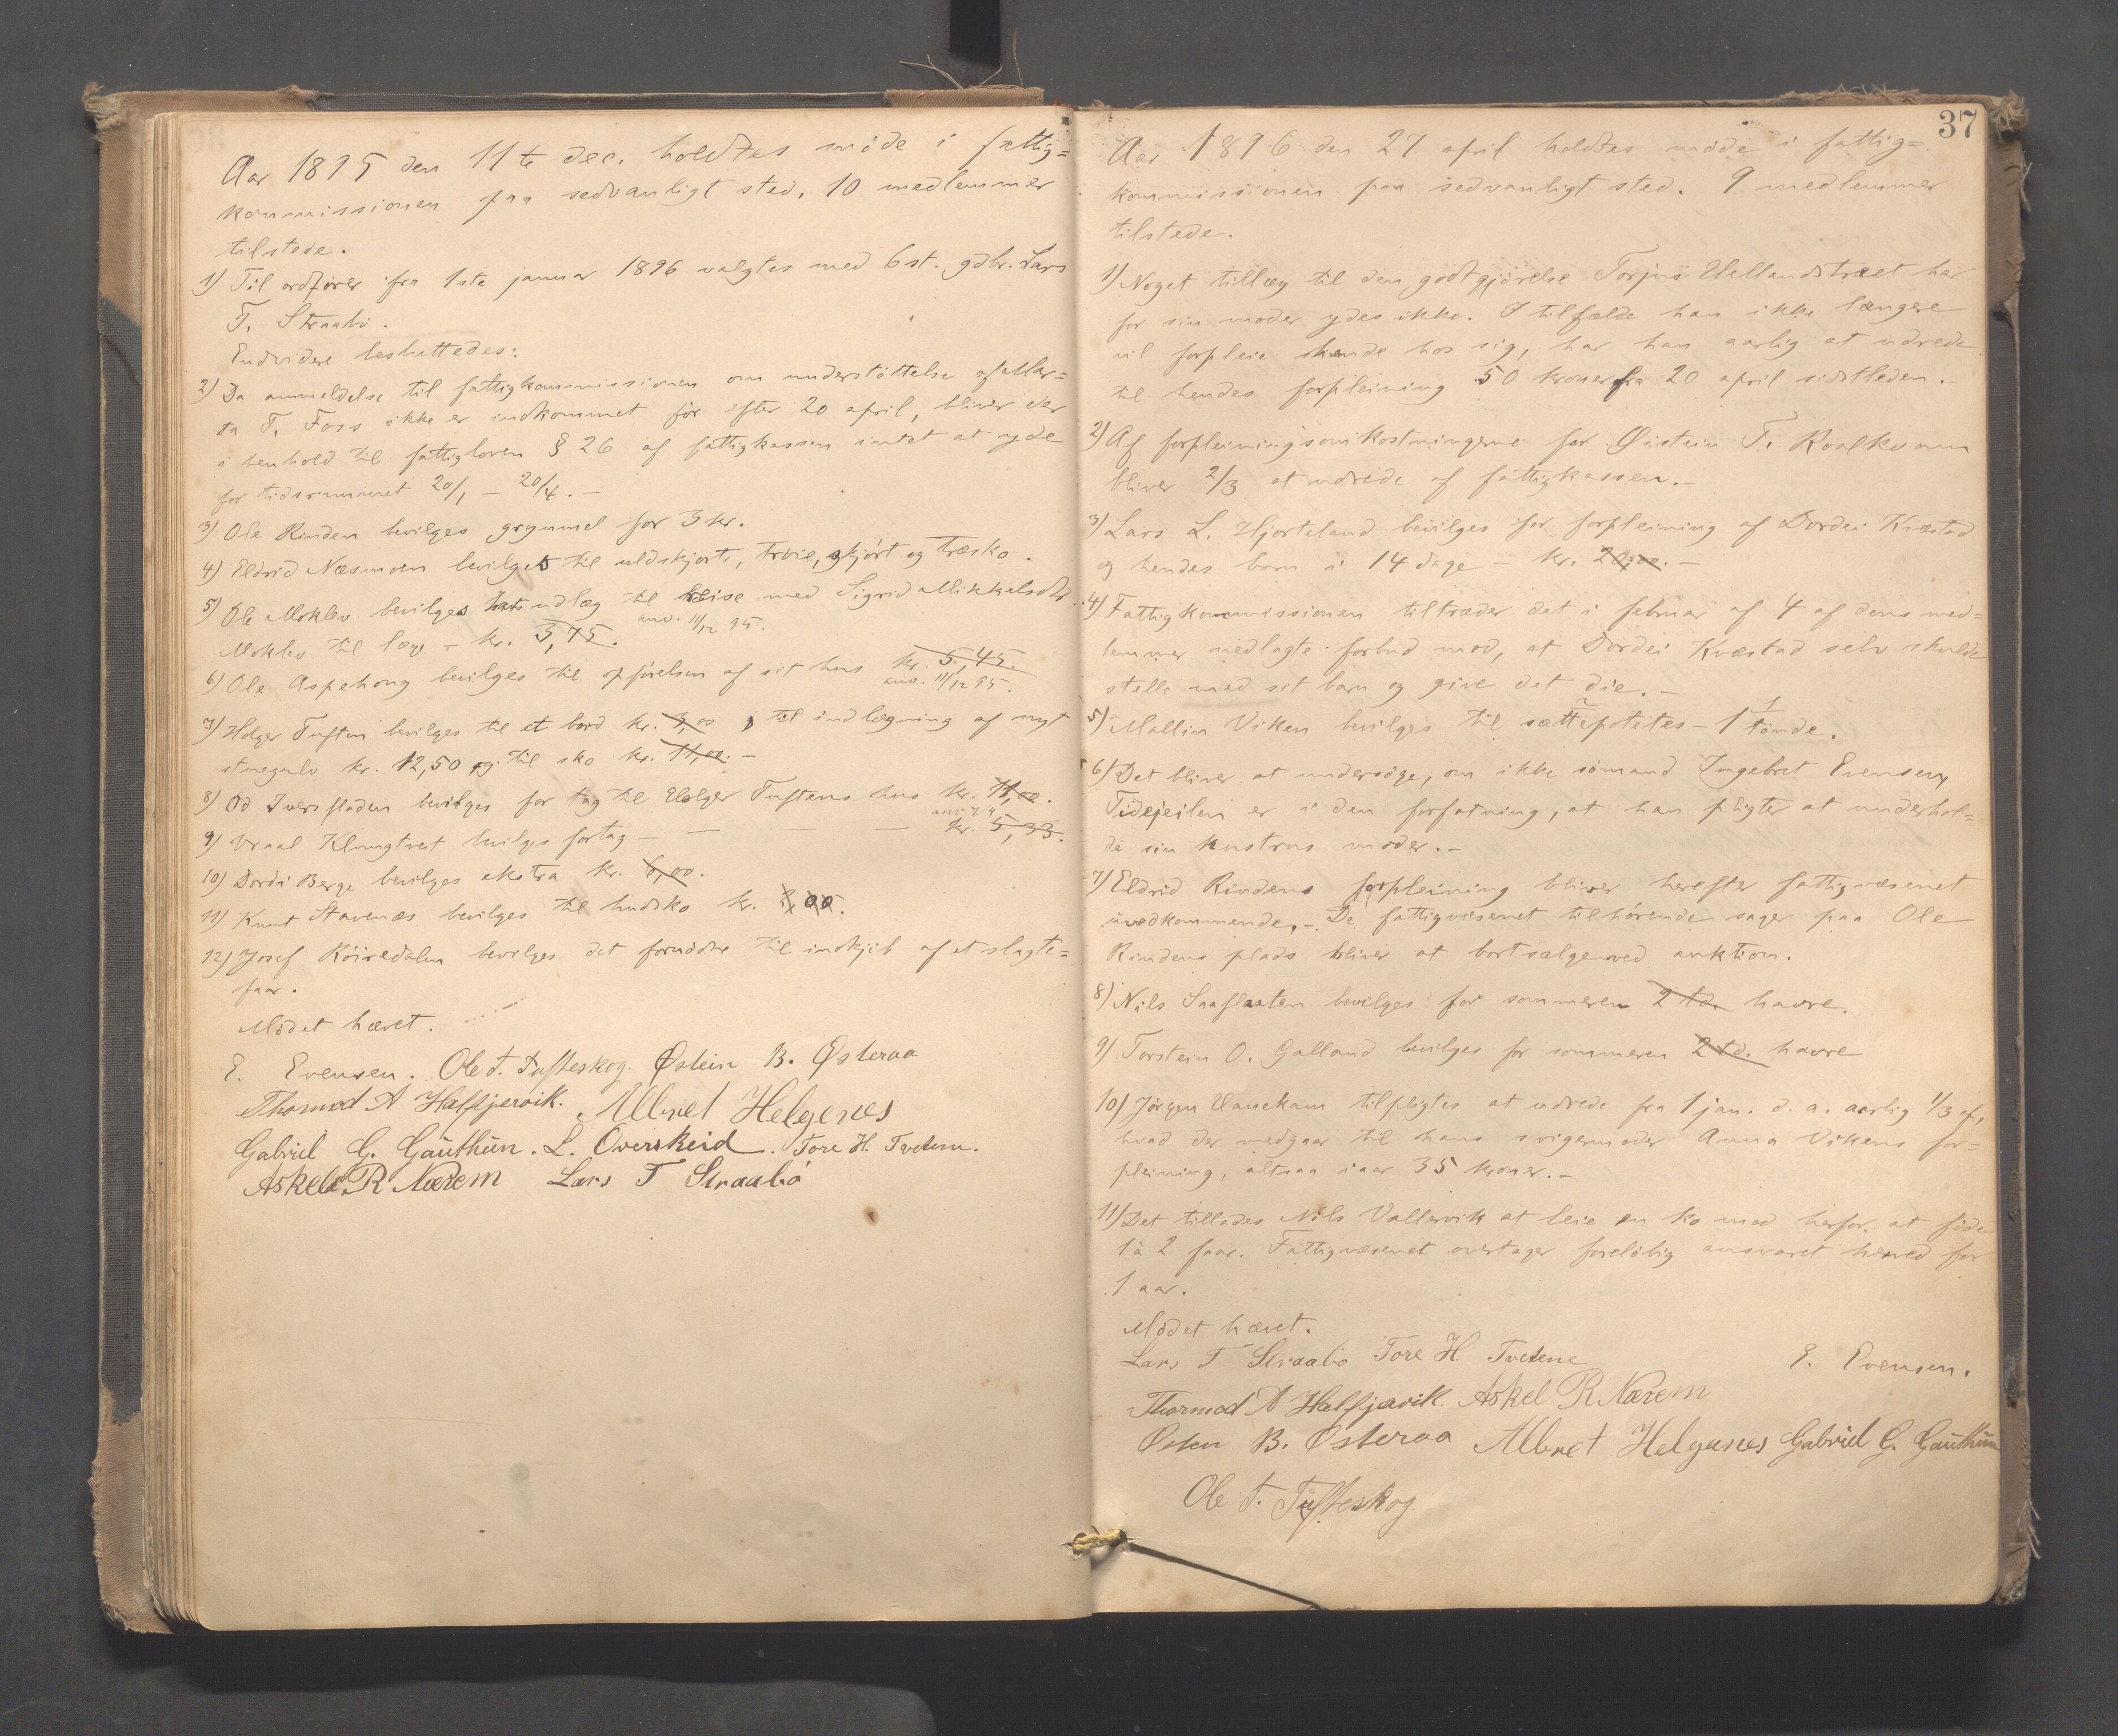 Aar 1895 den 11te dec. holdtes møde i fattig=
kommissionen paa sedvanligt sted, 10 medlemmer
tilstede.
1) Til ordfører fra 1ste januar 1896 valgtes med 6 st. gdbr. Lars
T. Straabø.
Endvidere besluttedes:
2) Da anmeldelse til fattigkommissionen om understøttelse af Mar=
ta T. Foss ikke er indkommet før efter 20 april, bliver der
i henhold til fattigloven § 26 af fattigkassen intet at yde
for tidsrummet 20/1 – 20/4. –
3) Ole Rinden bevilges grynmel for 3 kr.
4) Eldrid Næsmoen bevilges til uldskjorte, trøie, skjørt og træsko.
5) Ole Moklev bevilges udlæg til reise med Sigrid Mikkelsdtr.
Moklev til læge – kr. 3,75. anv. 11/12 95.
6) Ole Aspehaug bevilges til opførelsen af sit hus kr. 5,45.
anv. 11/12 95.
7) Holger Tuften bevilges til et bord kr. 3,00, til indlægning af nyt
stuegulv kr. 12,50 og til sko kr. 11,00. –
8) Od Iversfladen bevilges for tag til Holger Tuftens hus kr. 11,00.
9) Vraal Klungtveit bevilges for tag – — — — kr. 5,33.
10) Dordi Berge bevilges ekstra kr. 6,00.
11) Knut Stavenæs bevilges til hudsko kr. 3,00.
12) Josef Røiredalen bevilges det fornødne til indkjøb af et slagte=
faar.
Mødet hævet.
E. Evensen. Ole T. Tufteskog. Østein B. Østeraa
Thormod A Halfjervik. Albret Helgenes
Gabriel G. Gauthun. L. Overskeid. Tore H. Tvetene.
Askel R Nærem Lars T Straabø
37
Aar 1896 den 27 april holdtes møde i fattig=
kommissionen paa sedvanligt sted. 9 medlemmer
tilstede.
1) Noget tillæg til den godtgjørelse Torjus Hellandstræet har
for sin moder ydes ikke. I tilfælde han ikke længere
vil forpleie hende hos sig, har han aarlig at udrede
til hendes forpleining 50 kroner fra 20 april sidstleden. –
2) Af forpleiningsomkostningerne for Øistein T. Kvalkvam
bliver 2/3 at udrede af fattigkassen. –
3) Lars L. Hjorteland bevilges for forpleining af Dordei Kvæstad
og hendes barn i 14 dage – kr. 20,00. –
4) Fattigkommissionen tiltræder det i februar af 4 af dens med=
lemmer nedlagte forbud mod, at Dordei Kvæstad selv skulde
stelle med sit barn og give det die. –
5) Mallin Viken bevilges til sættepotetes – 1 tønde.
6) Det bliver at undersøge, om ikke sømand Ingebret Evensen,
Tidejeilen er i den forfatning, at han pligter at underhol=
de sin kustrus moder. –
7) Eldrid Rindens forpleining bliver herefter fattigvæsenet
uvedkommende. – De fattigvæsenet tilhørende sager paa Ole
Rindens plads bliver at bortsælge ved auktion.
8) Nils Saaflaaten bevilges for sommeren 2 td. havre.
9) Torstein O. Galland bevilges for sommeren 2 td. havre
10) Jørgen Vanekam tilpligtes at udrede fra 1 jan. d. a. aarlig 1/3 af,
hvad der medgaar til hans svigermoder Anna Vikens for=
pleining, altsaa iaar 35 kroner. –
11) Det tillades Nils Vallervik at leie en ko mod herfor at føde
1 à 2 faar. Fattigvæsenet overtager foreløbig ansvaret herved for
1 aar.
Mødet hævet.
Lars T Straabø Tore H. Tvetene E. Evensen.
Thormod A Halfjervik. Askel R Nærem
Østen B. Østeraa Albret Helgenes Gabriel G. Gauthun
Ole T. Tufteskog